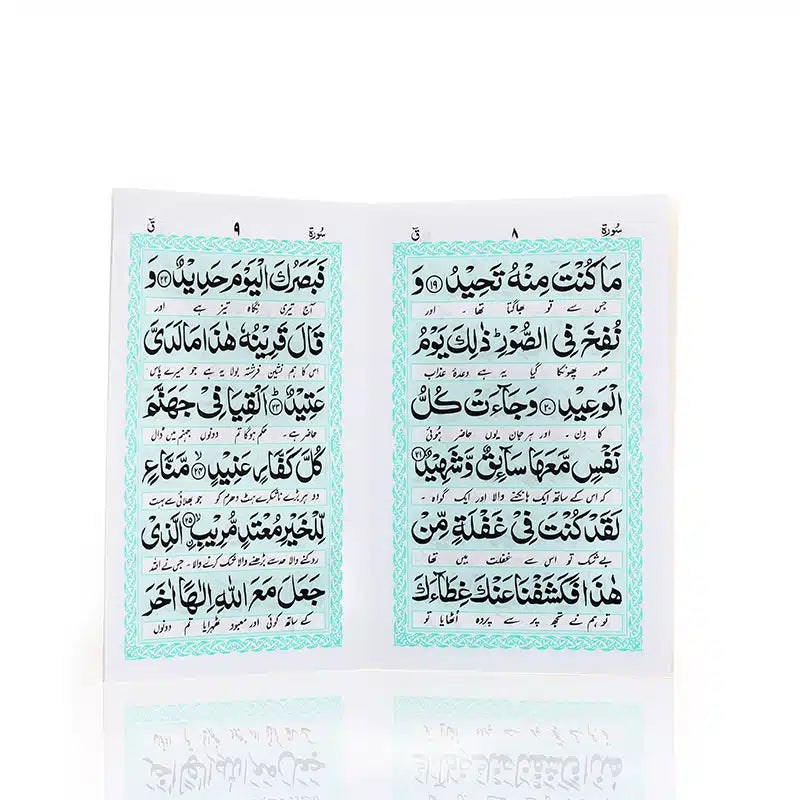 سُورة ٨ قٓ
مَا كُنْتَ مِنْهُ تَحِيْدُ ﴿١٩﴾ وَ
جس سے تو بھاگتا تھا ۔ اور
نُفِخَ فِى الصُّوْرِ ؕ ذٰلِكَ يَوْمُ
صور پھونکا گیا یہ ہے وعدۂ عذاب
الْوَعِيْدِ ﴿٢٠﴾ وَجَآءَتْ كُلُّ
کا دن ۔ اور ہر جان یوں حاضر ہوئی
نَفْسٍ مَّعَهَا سَآئِقٌ وَّشَهِيْدٌ ﴿٢١﴾
کہ اس کے ساتھ ایک ہانکنے والا اور ایک گواہ ۔
لَقَدْ كُنْتَ فِىْ غَفْلَةٍ مِّنْ
بے شک تو اس سے غفلت میں تھا
هٰذَا فَكَشَفْنَا عَنْكَ غِطَآءَكَ
تو ہم نے تجھ پر سے پردہ اٹھایا تو
سُورة ٩ قٓ
فَبَصَرُكَ الْيَوْمَ حَدِيْدٌ ﴿٢٢﴾ وَ
آج تیری نگاہ تیز ہے اور
قَالَ قَرِيْنُهٗ هٰذَا مَا لَدَىَّ
اس کا ہم نشین فرشتہ بولا یہ ہے جو میرے پاس
عَتِيْدٌ ؕ ﴿٢٣﴾ اَلْقِيَا فِىْ جَهَنَّمَ
حاضر ہے ۔ حکم ہوگا تم دونوں جہنم میں ڈال
كُلَّ كَفَّارٍ عَنِيْدٍ ﴿٢٤﴾ مَّنَّاعٍ
دو ہر بڑے ناشکرے ہٹ دھرم کو جو بھلائی سے بہت
لِّلْخَيْرِ مُعْتَدٍ مُّرِيْبِ ﴿٢٥﴾ اۨلَّذِىْ
روکنے والا حد سے بڑھنے والا شک کرنے والا ۔ جس نے اللہ
جَعَلَ مَعَ اللّٰهِ اِلٰهًا اٰخَرَ
کے ساتھ کوئی اور معبود ٹھہرایا تم دونوں